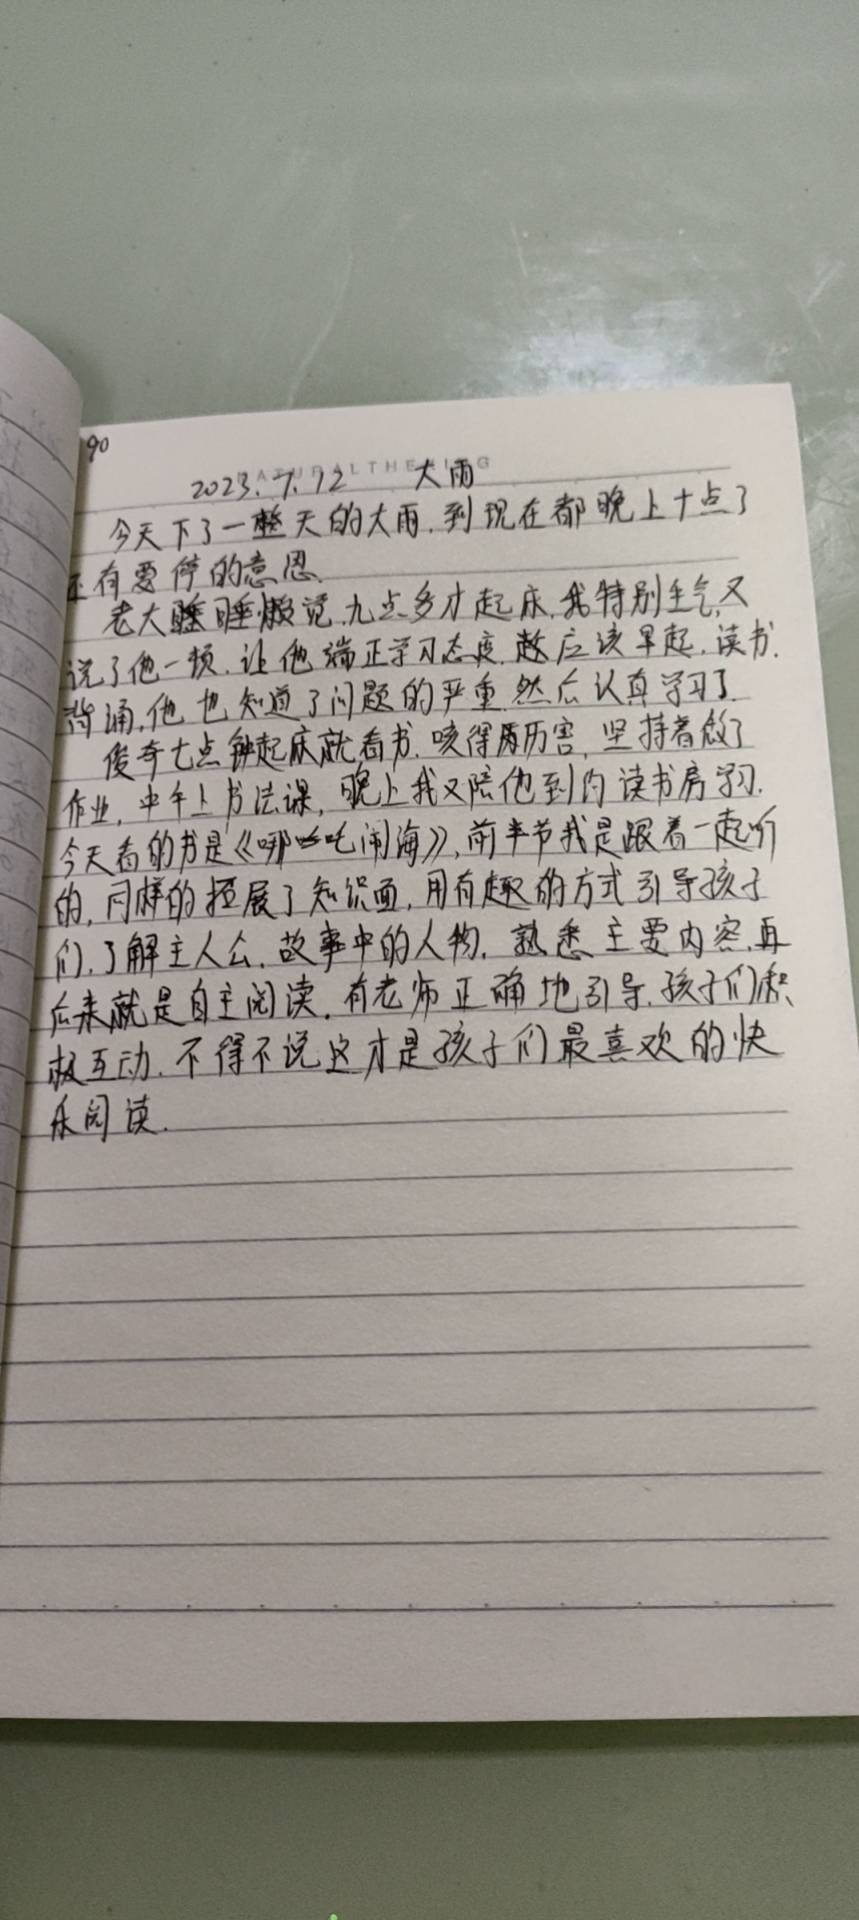 90
NATURALTHEKING
2023.7.12 大雨
今天下了一整天的大雨.到现在都晚上十点了
还有要停的意思.
老大睡睡懒觉.九点多才起床.我特别生气,又
说了他一顿.让他端正学习态度.越应该早起.读书.
背诵.他也知道了问题的严重 然后认真学习了.
俊奇七点钟起床就看书.咳得厉厉害,坚持着做了
作业,中午上书法课,晚上我又陪他到约读书房学习.
今天看的书是《哪吒闹海》,前半节我是跟着一起听
的,同样的拓展了知识面,用有趣的方式引导孩子
们.了解主人公.故事中的人物,熟悉主要内容.再
后来就是自主阅读.有老师正确地引导.孩子们积
极互动.不得不说这才是孩子们最喜欢的快
乐阅读.